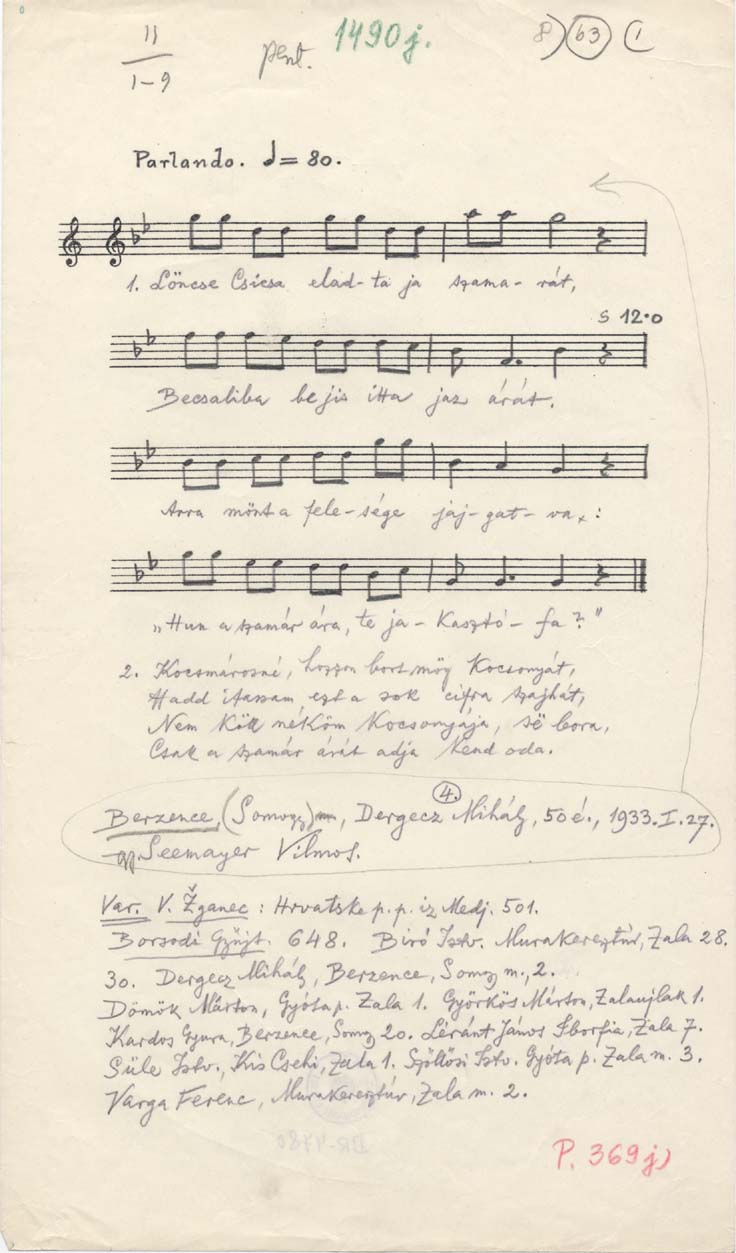 11
1-9
pent.
1490j.
8) 63 (1
Parlando. = 80.
1. Löncse Csicsa elad- ta ja szama- rát,
S 12.0
Becsaliba be jis itta jaz árát.
Arra mönt a fele- sége jaj- gat- va:
„Hun a szamár ára, te ja- Kasztó- fa?"
2. Kocsmárosné, hozzon bort mög Kocsonyát,
Hadd itassam ezt a sok cifra szajhát,
Nem Köll néköm Kocsonyája, së bora,
Csak a szamár árát adja Kend oda.
4.
Berzence, (Somogy) m, Dergecz Mihály, 50 é., 1933.I.27.
Seemayer Vilmos.
Var. V. Žganec: Hrvatske p.p. iz Medj. 501.
Borsodi Gyűjt. 648. Biró Istv. Murakeresztúr, Zala 28.
30. Dergecz Mihály, Berzence, Somogy m., 2.
Dömök Márton, Gyóta p. Zala 1. Györkös Márton, Zalaujlak 1.
Kardos Gyura, Berzence, Somogy 20. Léránt János Iborfia, Zala 7.
Süle Istv., Kis Csehi, Zala 1. Szöllősi Istv. Gyóta p. Zala m. 3.
Varga Ferenc, Murakeresztúr, Zala m. 2.
P. 369j)